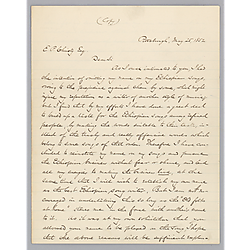 (Copy)
Pittsburgh, May 25, 1852
E. P. Christy Esq.
Dear Sir:
As I once intimated to you, I had
the intention of omitting my name on my Ethiopian songs,
owing to the prejudice against them by some, which might
injure my reputation as a writer of another style of music,
but I find that by my efforts I have done a great deal
to build up a taste for the Ethiopian songs among refined
people by making the words suitable to their taste, in-
stead of the trashy and really offensive words which
belong to some songs of that order. Therefore I have con-
cluded to reinstate my name on my songs and pursue
the Ethiopian business without fear or shame and lend
all my energies to making the business live, at the
same time that I will wish to establish my name
as the best Ethiopian song-writer. But I am not en-
couraged in undertaking this so long as "The Old Folks
at Home" stares me in the face with another's name
on it. As it was at my own solicitation that you
allowed your name to be placed on the song, I hope
that the above reasons will be sufficient explana-